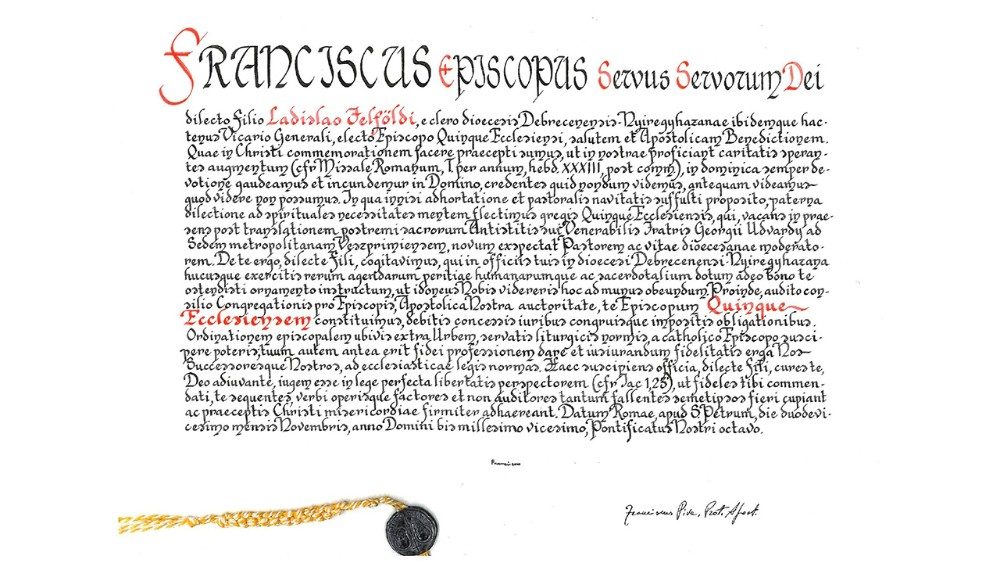 FRANCISCUS EPISCOPUS Servus Servorum Dei
dilecto Filio Ladislao Felföldi, e clero dioecesis Debrecenensis-Nyiregyhazanae ibidemque hac-
tenus Vicario Generali, electo Episcopo Quinque Ecclesiensi, salutem et Apostolicam Benedictionem.
Quae in Christi commemorationem facere praecepti sumus, ut in nostrae proficiant caritatis speran-
tes augmentum (cfr Missale Romanum, T. per annum, hebd. XXXIII, post comm), in dominica semper de-
votione gaudeamus et iucundemur in Domino, credentes quid nondum videmus, antequam videamus
quod videre non possumus. In qua innisi adhortatione et pastoralis navitatis suffulti proposito, paterna
dilectione ad spirituales necessitates mentem flectimus gregis Quinque Ecclesiensis, qui, vacans in prae-
sens post translationem postremi sacrorum Antistitis sui, Venerabilis Fratris Georgii Udvardy ad
Sedem metropolitanam Veszprimiensem, novum exspectat Pastorem ac vitae dioecesanae moderato-
rem. De te ergo, dilecte Fili, cogitavimus, qui in officiis tuis in dioecesi Debrecenensi-Nyiregyhazana
hucusque exercitis rerum agendarum peritiae humanarumque ac sacerdotalium dotum adeo bono te
ostendisti ornamento instructum, ut idoneus Nobis videreris hoc ad munus obeundum. Proinde, audito con-
silio Congregationis pro Episcopis, Apostolica Nostra auctoritate, te Episcopum Quinque
Ecclesiensem constituimus, debitis concessis iuribus congruisque impositis obligationibus.
Ordinationem episcopalem ubivis extra Urbem, servatis liturgicis normis, a catholico Episcopo susci-
pere poteris; tuum autem antea erit fidei professionem dare et iusiurandum fidelitatis erga Nos
Successoresque Nostros, ad ecclesiasticae legis normas. Haec suscipiens officia, dilecte Fili, cures te,
Deo adiuvante, ingem esse in lege perfecta libertatis perspectorem (cfr Iac 1,25), ut fideles tibi commen-
dati, te sequentes verbi operisque factores et non auditores tantum fallentes semetipsos fieri cupiant
ac praeceptis Christi misericordiae firmiter adhaereant. Datum Romae, apud S. Petrum, die duodevi-
cesimo mensis Novembris, anno Domini bis millesimo vicesimo, Pontificatus Nostri octavo.
Franciscus
Franciscus Piva, Prot. Apost.